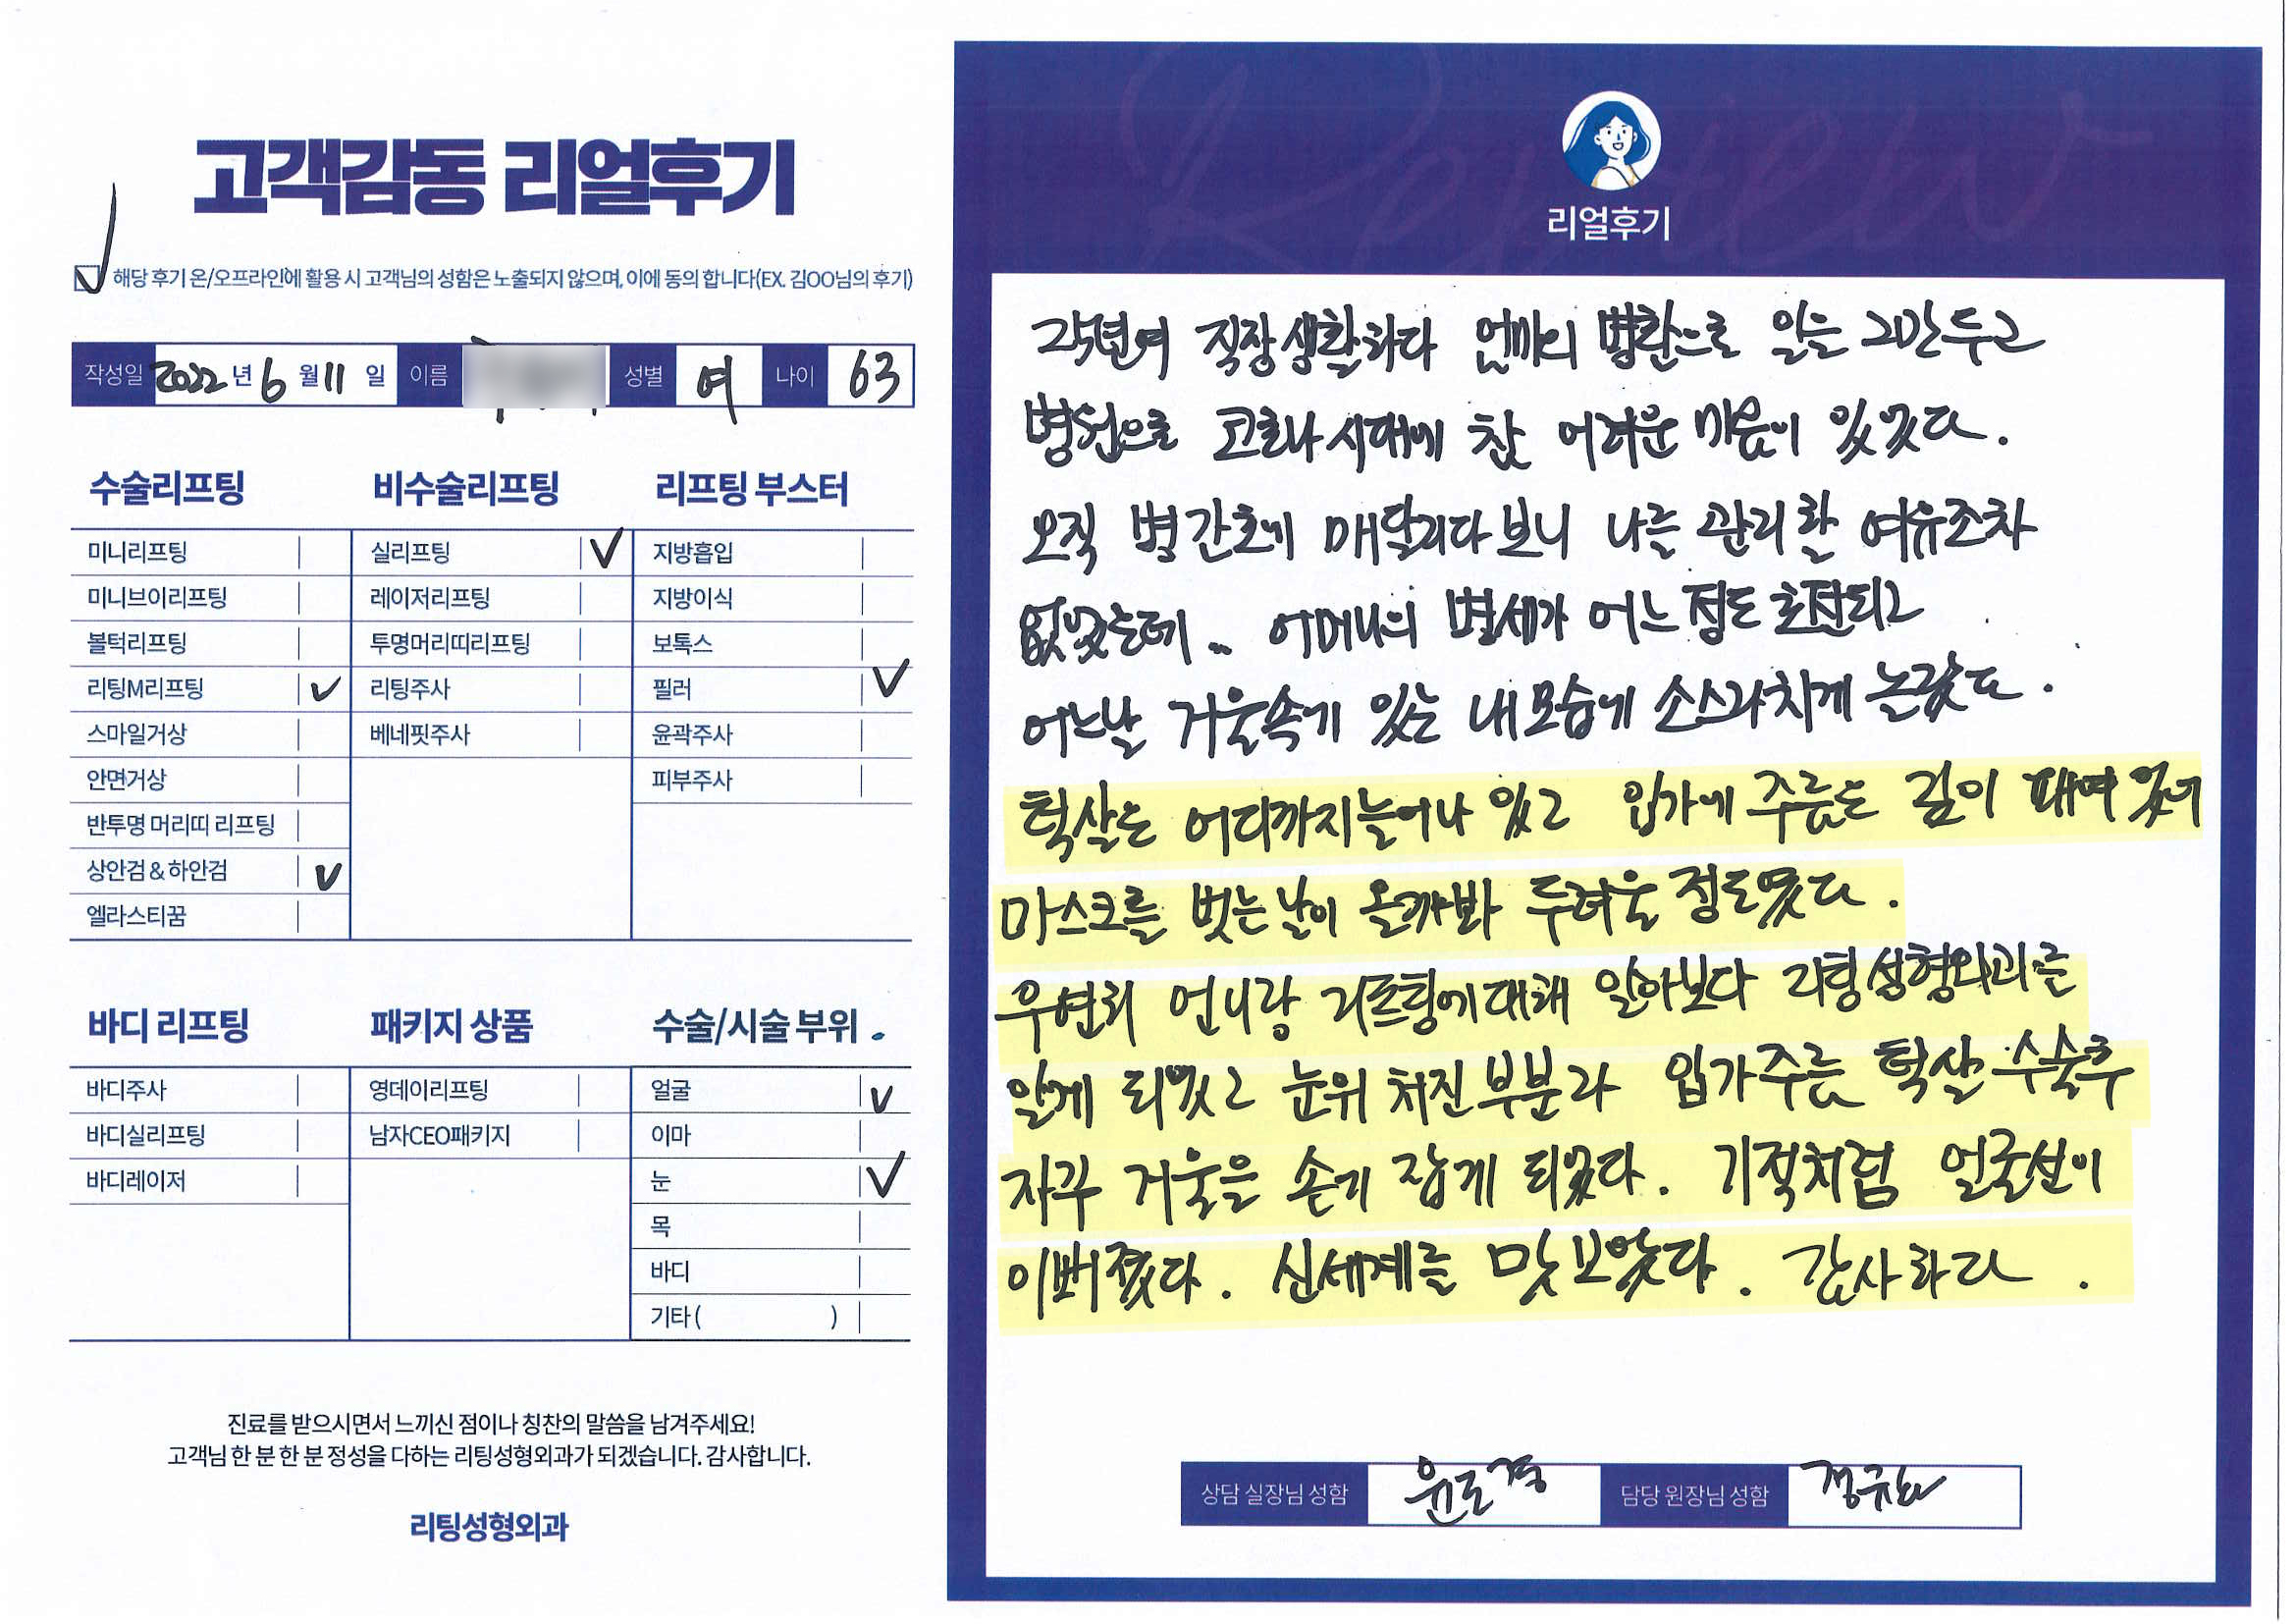 고객감동 리얼후기
해당 후기 온/오프라인에 활용 시 고객님의 성함은 노출되지 않으며, 이에 동의 합니다(EX. 김OO님의 후기)
작성일 2022 년 6 월 11 일 이름 성별 여 나이 63
수술리프팅
미니리프팅
미니브이리프팅
볼턱리프팅
리팅M리프팅 ✓
스마일거상
안면거상
반투명 머리띠 리프팅
상안검&하안검 ✓
엘라스티꿈
비수술리프팅
실리프팅 ✓
레이저리프팅
투명머리띠리프팅
리팅주사
베네핏주사
리프팅 부스터
지방흡입
지방이식
보톡스
필러 ✓
윤곽주사
피부주사
바디 리프팅
바디주사
바디실리프팅
바디레이저
패키지 상품
영데이리프팅
남자CEO패키지
수술/시술 부위
얼굴 ✓
이마
눈 ✓
목
바디
기타( )
진료를 받으시면서 느끼신 점이나 칭찬의 말씀을 남겨주세요!
고객님 한 분 한 분 정성을 다하는 리팅성형외과가 되겠습니다. 감사합니다.
리팅성형외과
Review
리얼후기
25년여 직장생활하다 엄마의 병환으로 일을 그만두고
병원으로 코로나시대에 참 어려운 마음이 있었다.
오직 병간호에 매달리다보니 나를 관리할 여유조차
없었는데.. 어머니의 병세가 어느정도 호전되고
어느날 거울속에 있는 내모습에 소스라치게 놀랐다.
턱살은 어디까지늘어나 있고 입가에 주름은 깊이 패여 있어
마스크를 벗는날이 올까봐 두려울 정도였다.
우연히 언니랑 리프팅에대해 알아보다 리팅성형외과를
알게 되었고 눈위 처진부분과 입가주름 턱살 수술후
자꾸 거울을 손에 잡게 되었다. 기적처럼 얼굴선이
이뻐졌다. 신세계를 맛보았다. 감사하다.
상담 실장님 성함 담당 원장님 성함